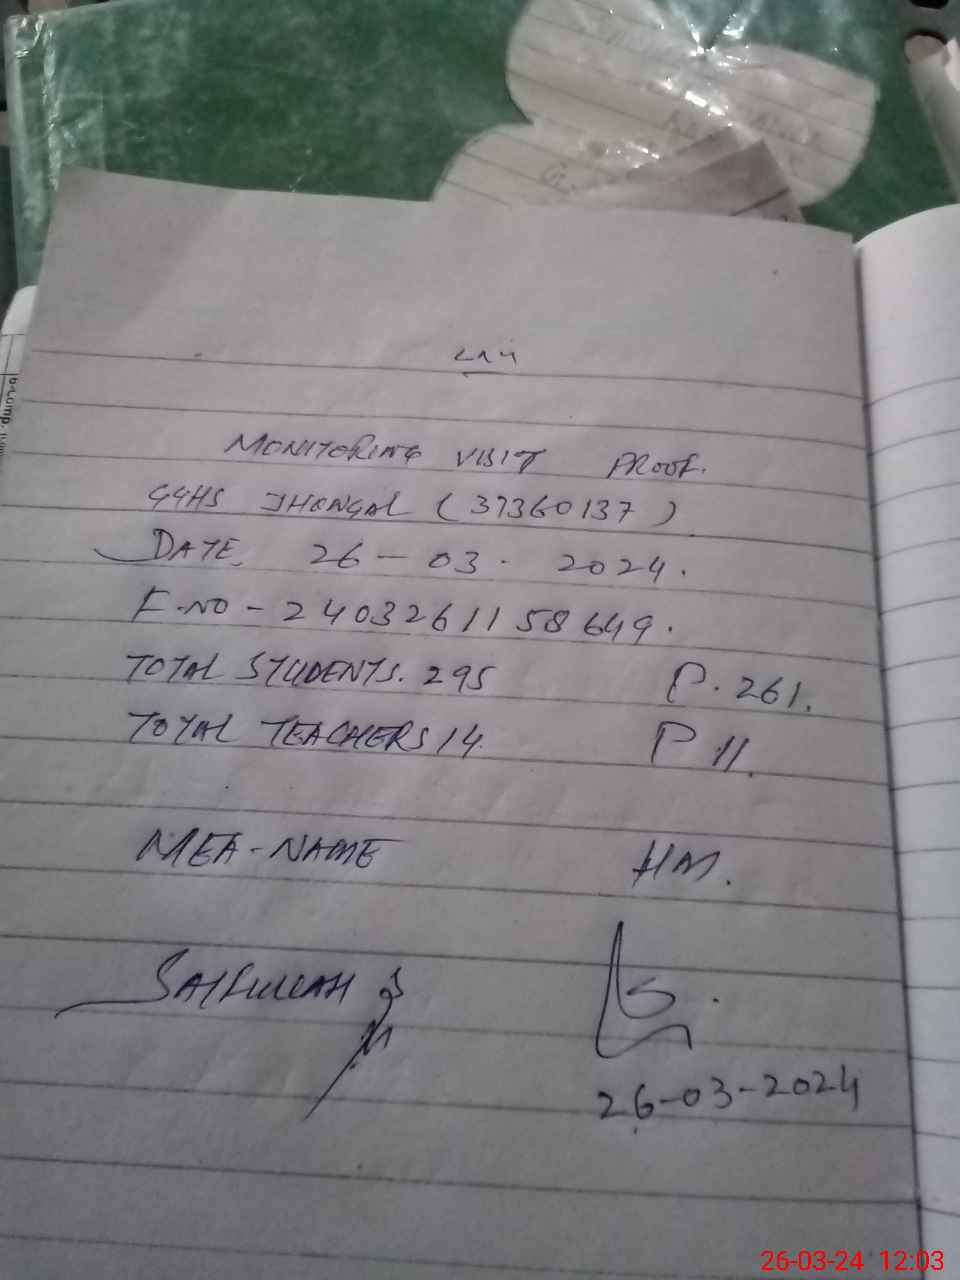 MONITORING VISIT PROOF.
GGHS JHONGAL (37360137)
DATE. 26-03-2024.
F.NO - 2403261158649.
TOTAL STUDENTS. 295 P. 261.
TOTAL TEACHERS 14. P 11.
MEA-NAME HM.
SAIFULLAH
26-03-2024
26-03-24 12:03